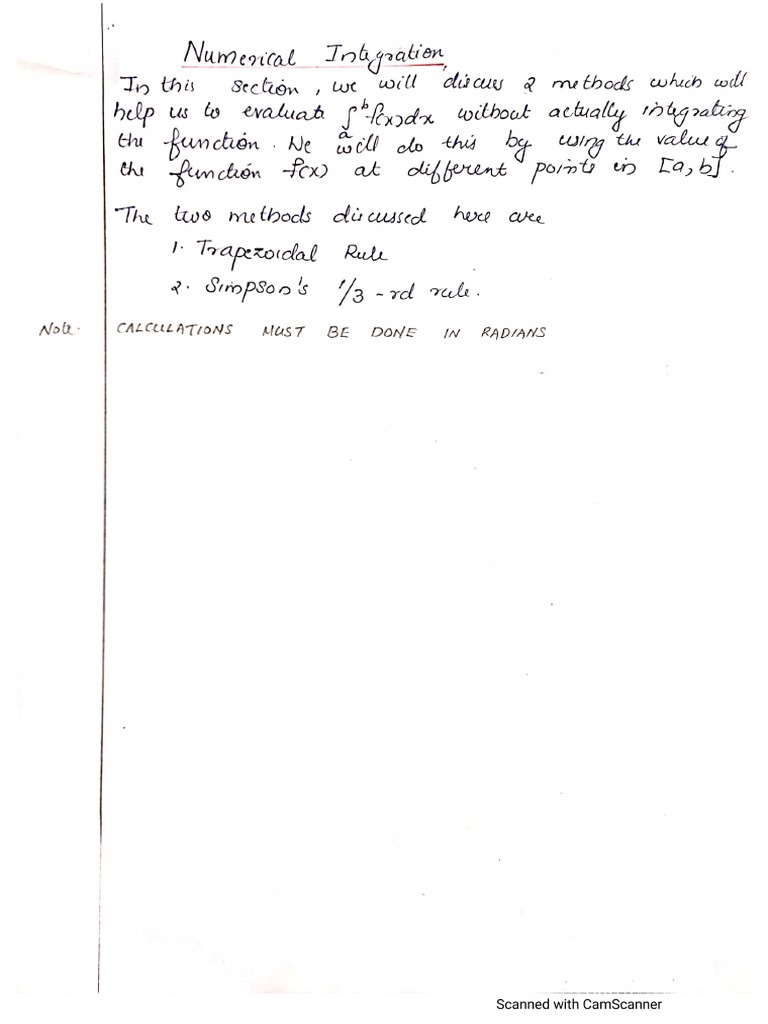 Numerical Integration
In this section, we will discuss 2 methods which will
help us to evaluate ∫ₐᵇ f(x)dx without actually integrating
the function. We will do this by using the value of
the function f(x) at different points in [a,b].
The two methods discussed here are
1. Trapezoidal Rule
2. Simpson's 1/3-rd rule.
Note. CALCULATIONS MUST BE DONE IN RADIANS
Scanned with CamScanner